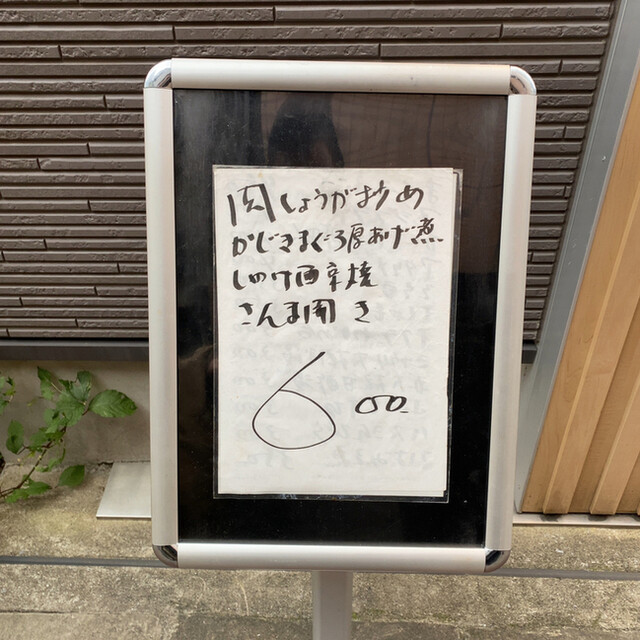 肉しょうが炒め
かじきまぐろ厚あげ煮
しゃけ西京焼
さんま開き
600